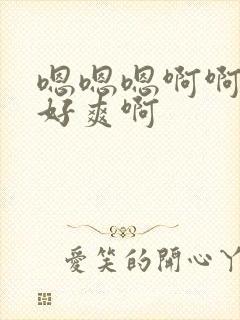 嗯嗯嗯啊啊
好爽啊
愛笑的開心丫